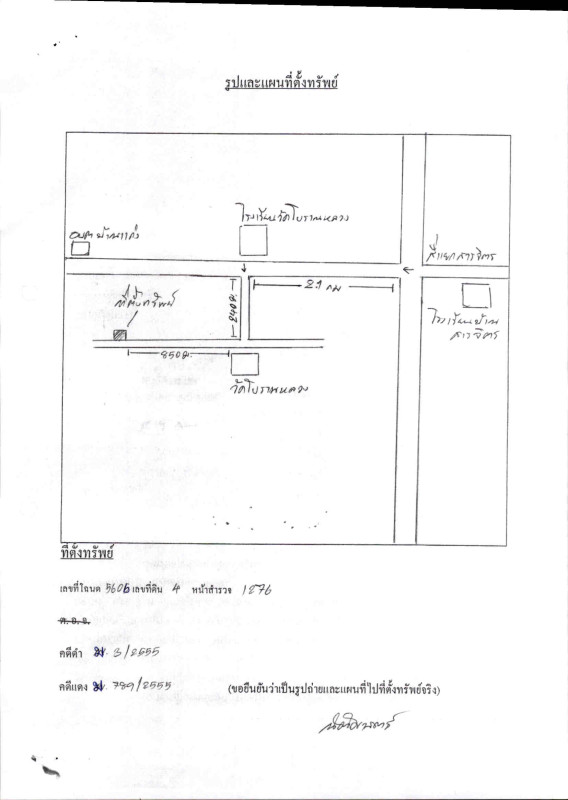 รูปและแผนที่ตั้งทรัพย์
โรงเรียนวัดโบราณหลวง
อบต บ้านแก่ง
สี่แยกสารจิตร
2.1 กม
ที่ตั้งทรัพย์
240 ม
โรงเรียนบ้าน
สารจิตร
850 ม.
วัดโบราณหลวง
ที่ตั้งทรัพย์
เลขที่โฉนด 5606 เลขที่ดิน 4 หน้าสำรวจ 1276
ค.ย.ย.
คดีดำ ม. 3/2555
คดีแดง ม. 789/2555 (ขอยืนยันว่าเป็นรูปถ่ายและแผนที่ไปที่ตั้งทรัพย์จริง)